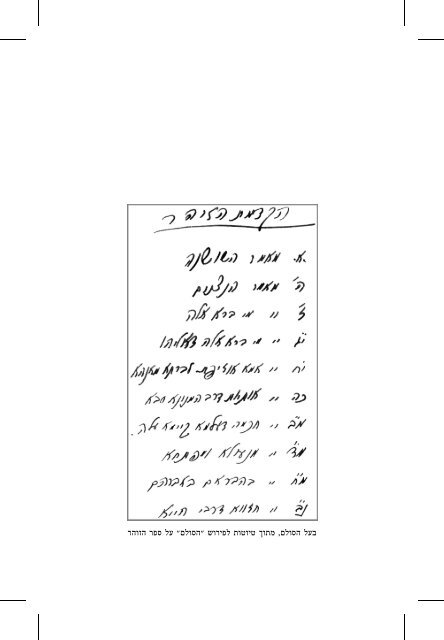 הקדמת הזוהר
א. מאמר השושנה
ה' מאמר הנצנים
ז' " מי ברא אלה
י"ג " מי ברא אלה דאליהו
י"ח " אמא אוזיפת לברתא מאנהא
כה " אותיות דרב המנונא סבא
מ"ב " חכמה דעלמא קיימא עלה.
מד' " מנעולא ומפתחא
מ"ח " בהבראם באברהם
נ"ב " חזווא דרבי חייא
בעל הסולם, מתוך טיוטות לפירוש "הסולם" על ספר הזוהר